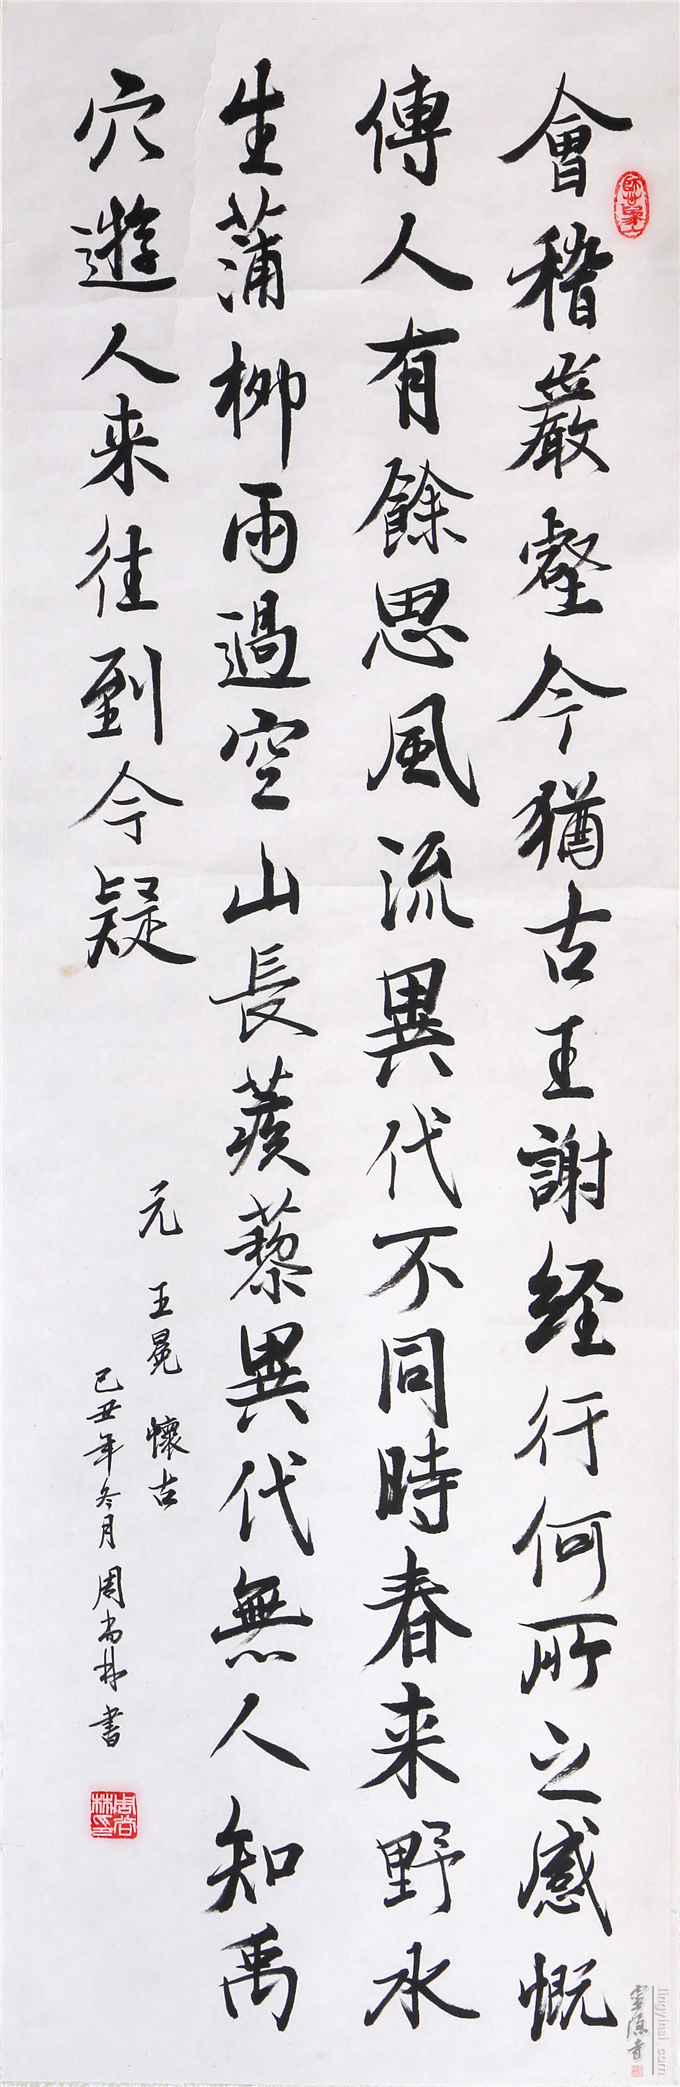 會稽巖壑今猶古王謝経行何所之感慨
傳人有餘思風流異代不同時春来野水
生蒲柳雨過空山長蒺藜異代無人知禹
穴遊人来往到今疑
元 王冕 懷古
己丑年冬月 周尚林書
jingyinsi.com